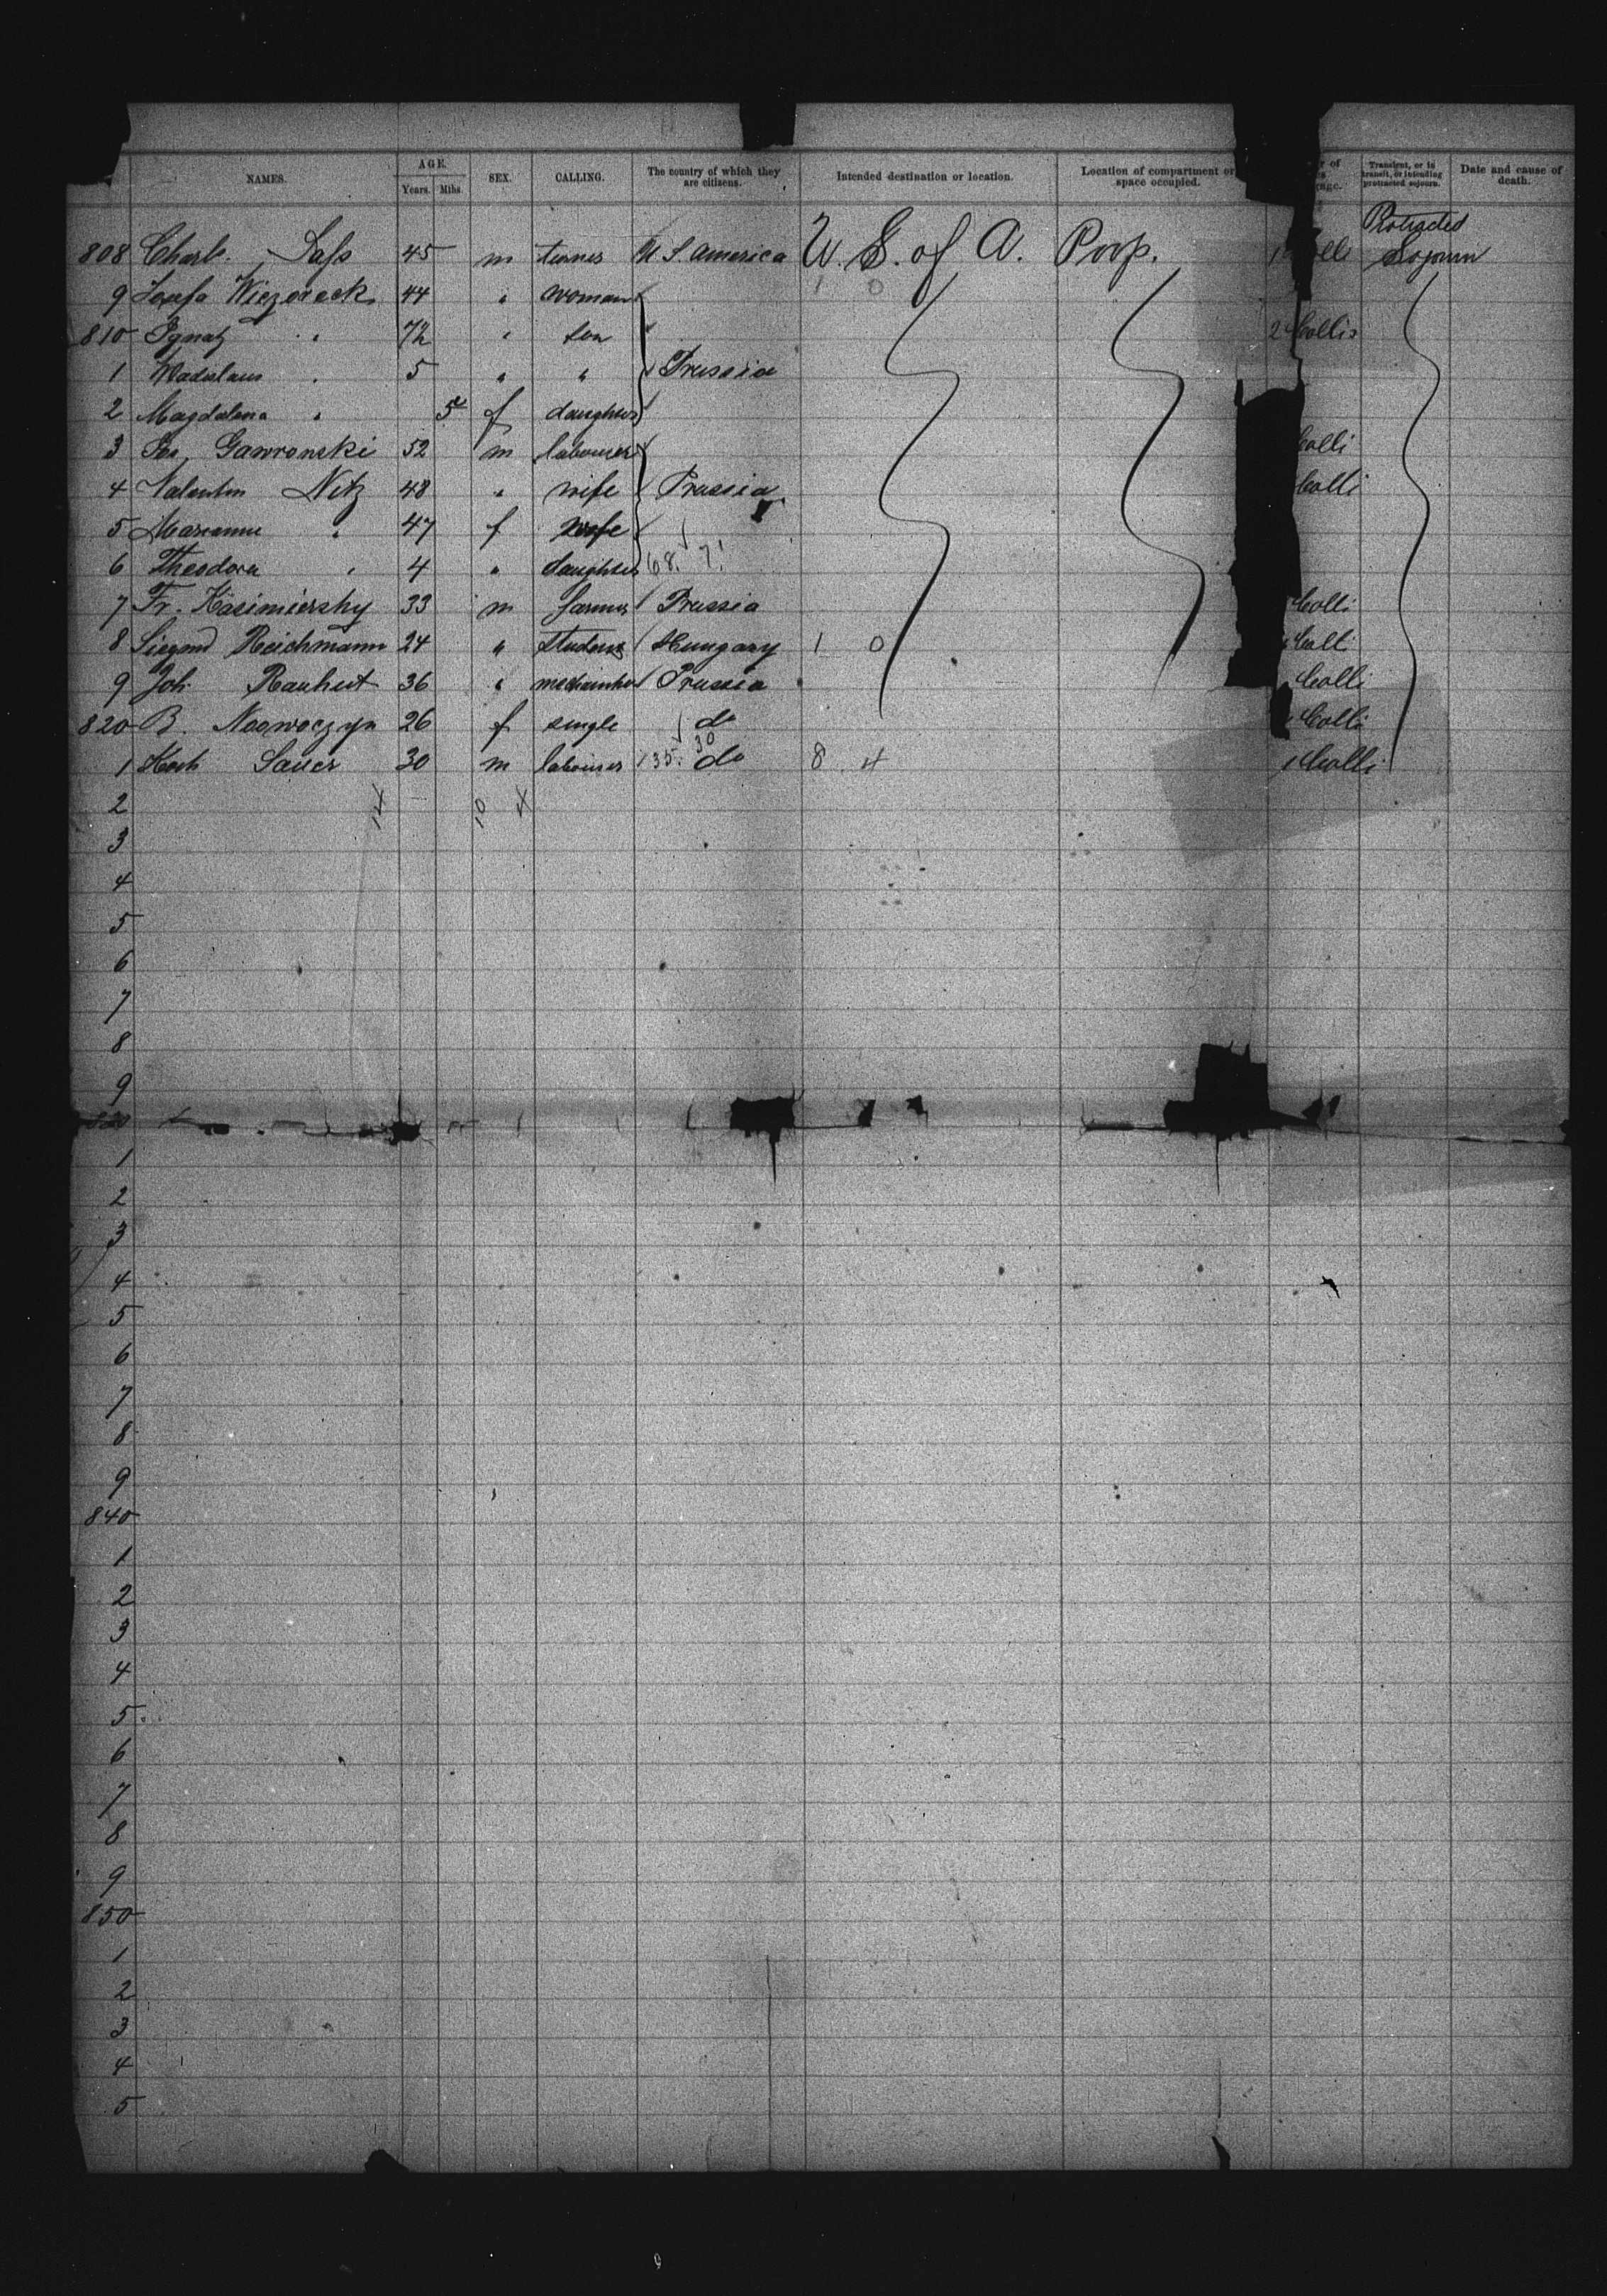 NAMES. AGE. Years. Mths. SEX. CALLING. The country of which they are citizens. Intended destination or location. Location of compartment or space occupied. Transient, or in transit, or intending protracted sojourn. Date and cause of death.
Protracted
808 Charl. Lass 45 m turner U S America U. S. of A. Poop. 1 Colli Sojourn
9 Josefa Wiezoreck 44 " woman 1 0
810 Ignatz " " son 2 Collis
1 Wadislaus " 5 " " Prussia
2 Magdalena " 5 f daughter
3 Gawronski 52 m labourer Colli
4 Valentin Nitz 48 " wife Prussia Colli
5 Marianne " 47 f wife
6 Theodora " 4 " daughter 68. 7!
7 Fr. Kasimiersky 33 m farmer Prussia Colli
8 Siegmd Reichmann 24 " student Hungary 1 0 Colli
9 Joh. Rauhut 36 " mechanic Prussia Colli
820 B. Noowoczyn 26 f single do Colli
30
1 Koch Sauer 30 m labourer 135. do 8 4 1 Colli
2 14 10 4
3
4
5
6
7
8
9
830
1
2
3
4
5
6
7
8
9
840
1
2
3
4
5
6
7
8
9
850
1
2
3
4
5